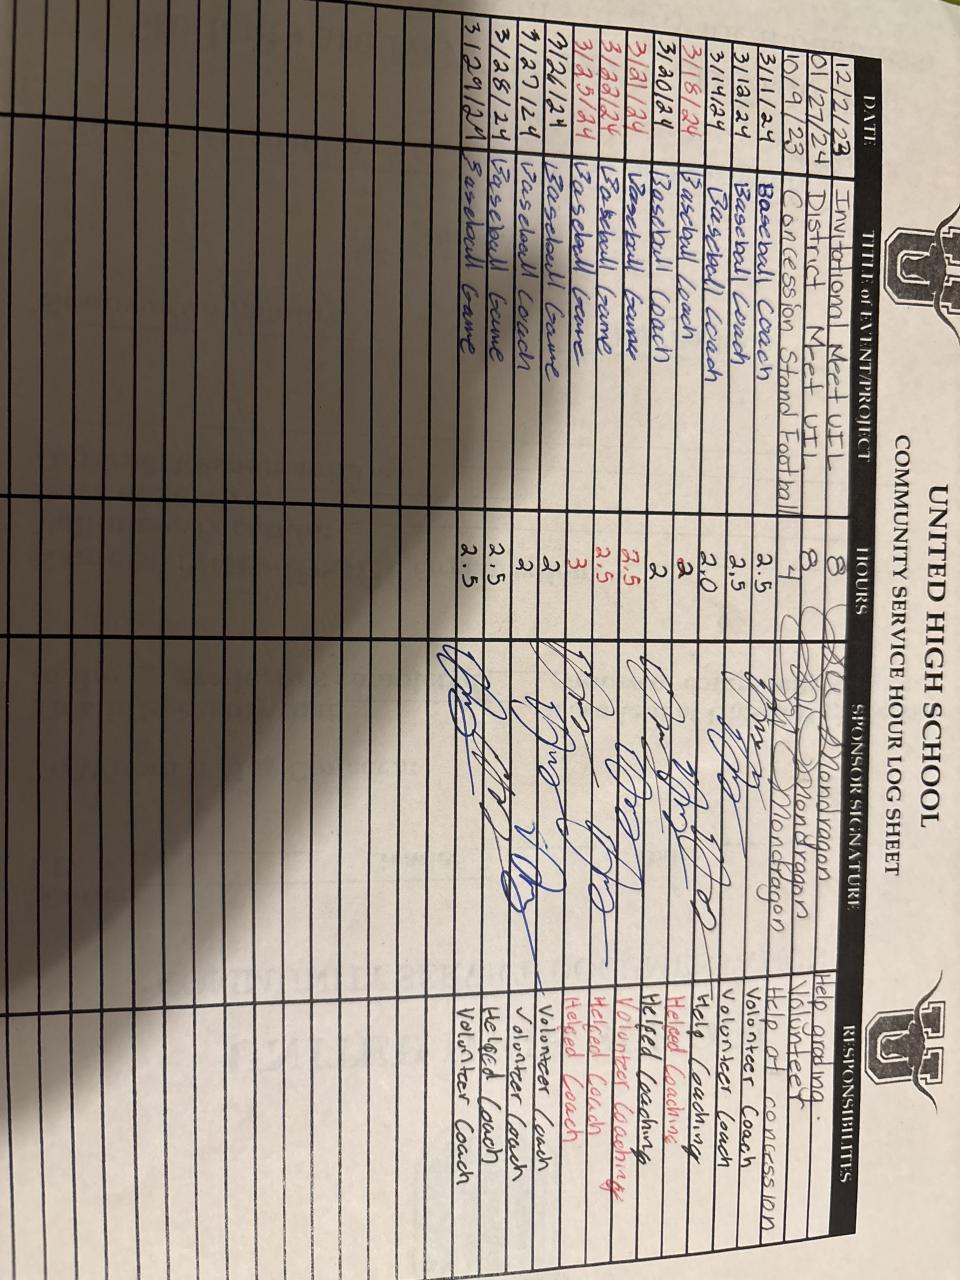 UNITED HIGH SCHOOL
COMMUNITY SERVICE HOUR LOG SHEET
DATE TITLE of EVENT/PROJECT HOURS SPONSOR SIGNATURE RESPONSIBILITES
12/2/23 Invitational Meet UIL 8 Mondragon Help grading.
01/27/24 District Meet UIL 8 Mondragon Volunteer
10/9/23 Concession Stand Football 4 Mondragon Help at concession
3/11/24 Baseball Coach 2.5 Volunteer Coach
3/12/24 Baseball Coach 2.5 Volunteer Coach
3/14/24 Baseball Coach 2.0 Help Coaching
3/18/24 Baseball Coach 2 Helped Coaching
3/20/24 Baseball Coach 2 Helped Coaching
3/21/24 Baseball Game 2.5 Volunteer Coaching
3/22/24 Baseball Game 2.5 Helped Coach
3/25/24 Baseball Game 3 Helped Coach
3/26/24 Baseball Game 2 Volunteer Coach
3/27/24 Baseball Coach 2 Volunteer Coach
3/28/24 Baseball Game 2.5 Helped Coach
3/29/24 Baseball Game 2.5 Volunteer Coach